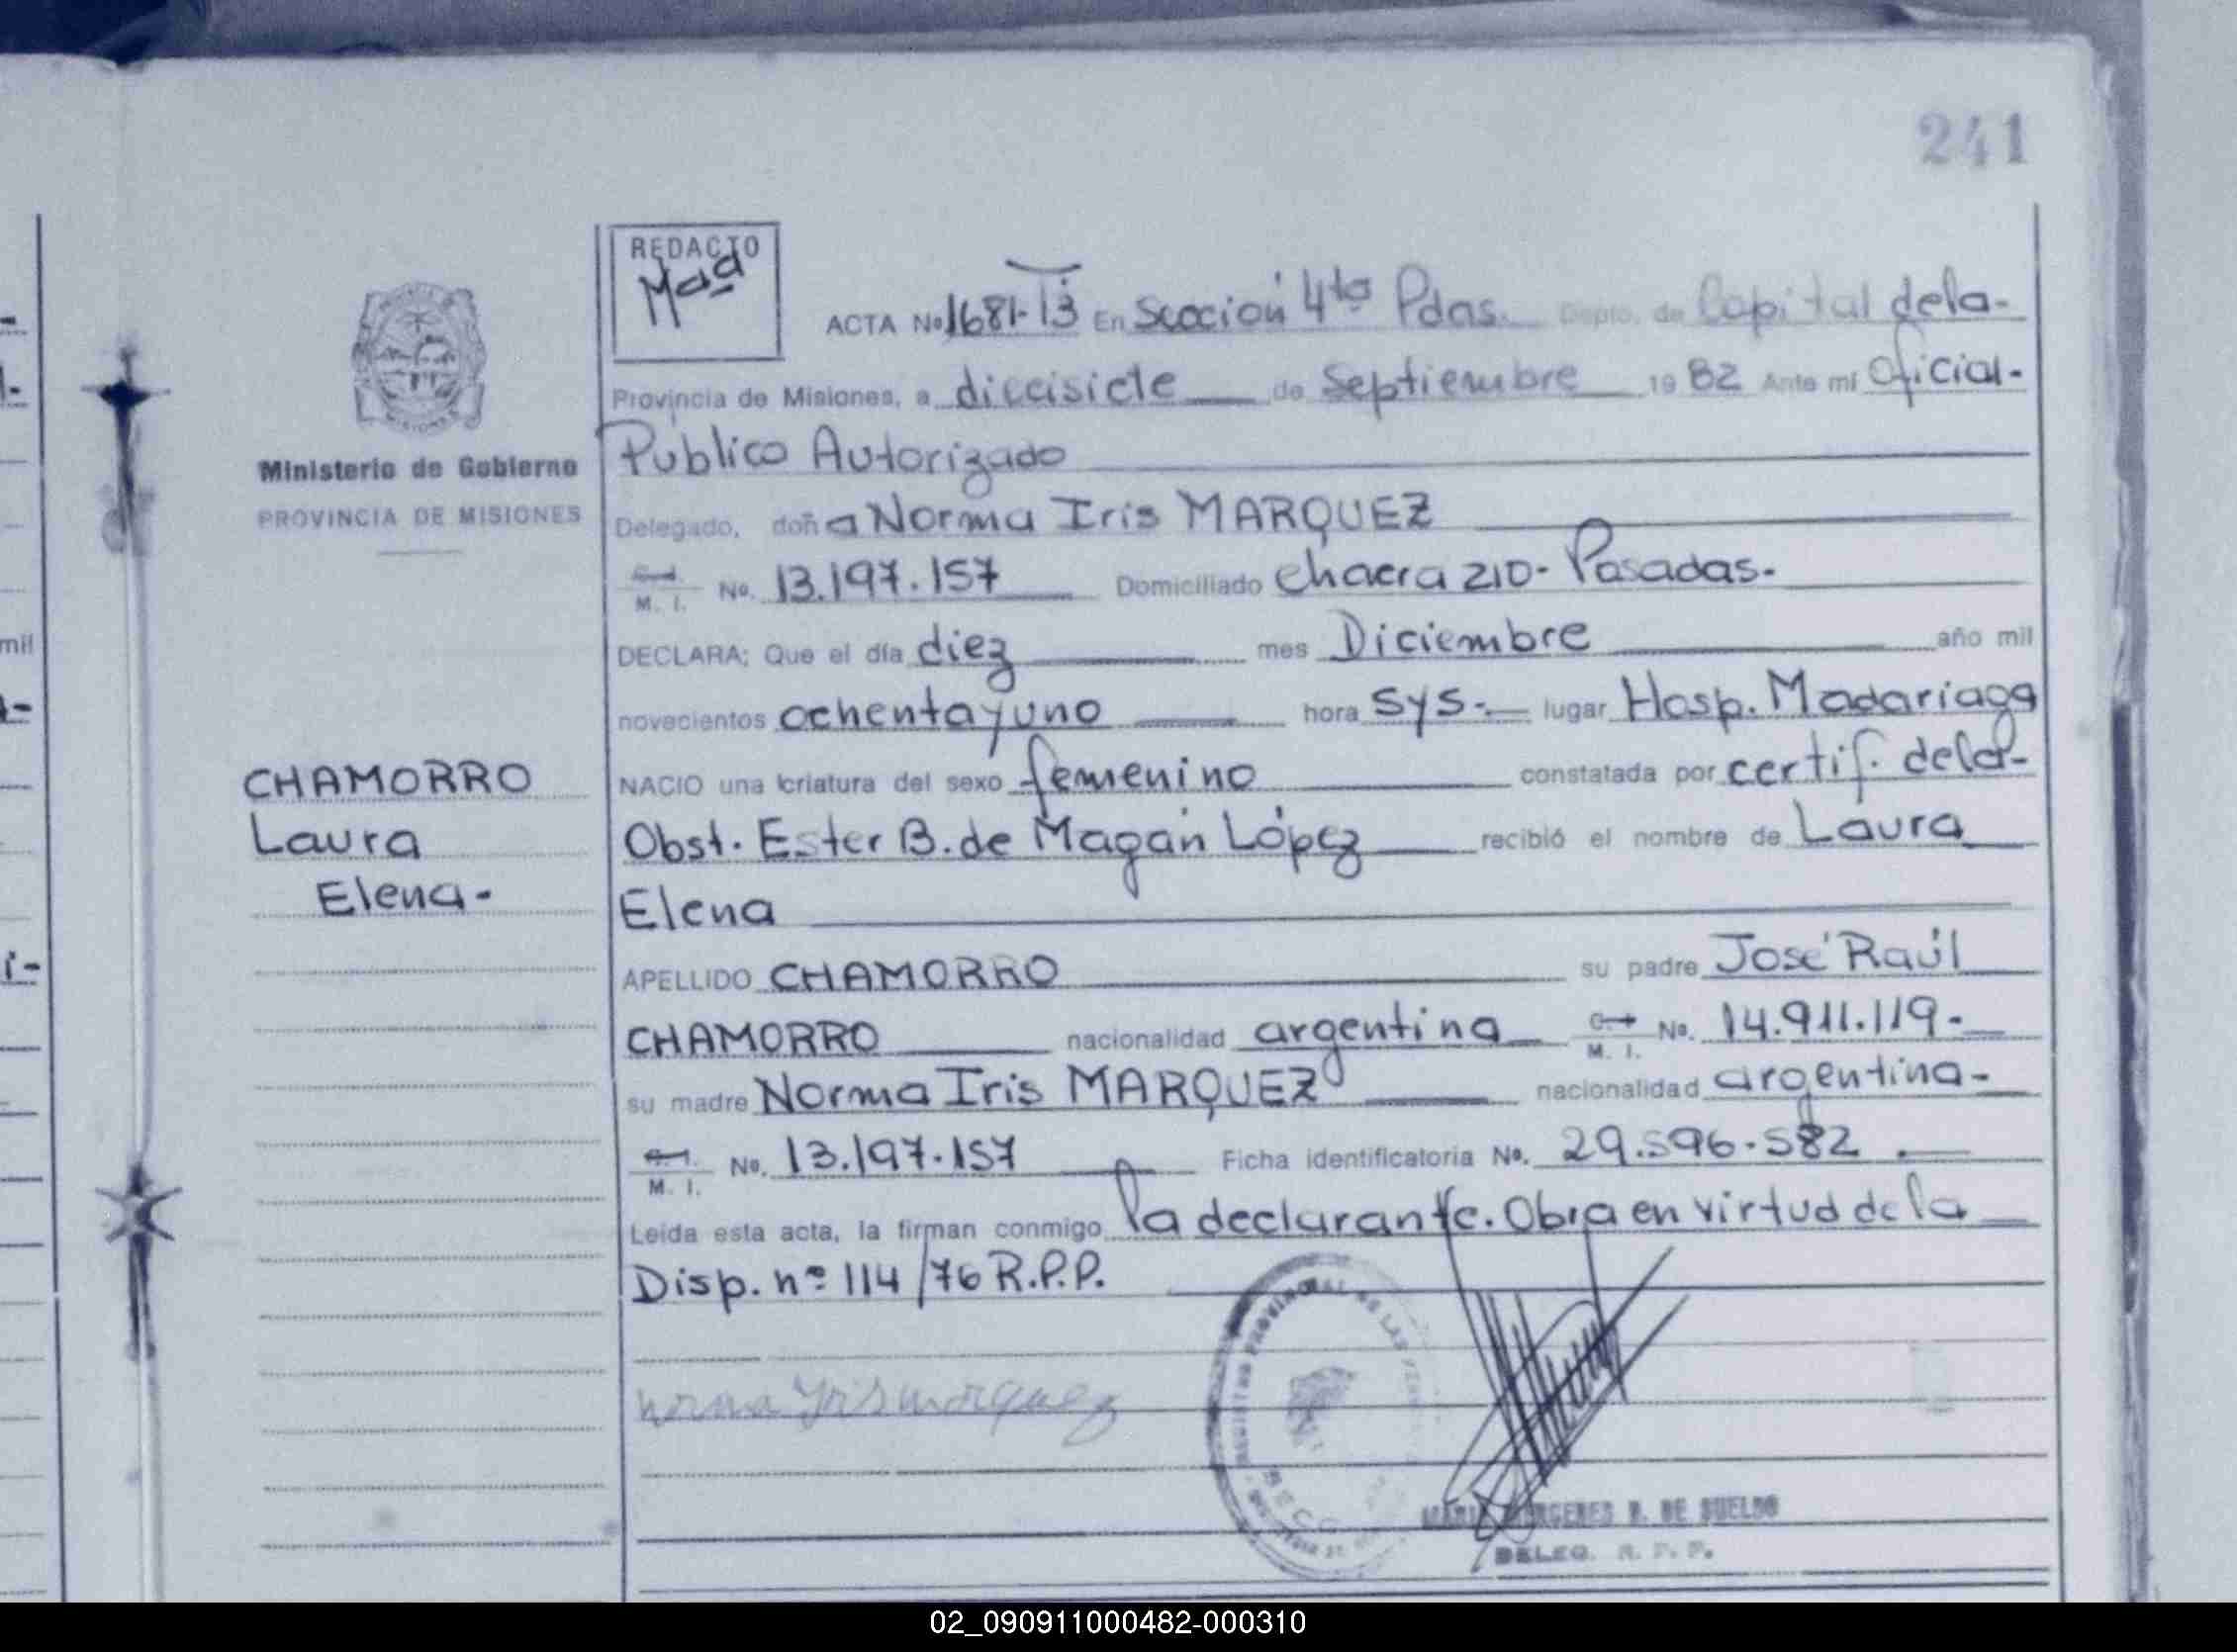 241
REDACTO
ACTA No 1681-T3 En Sección 4ta Pdas. Depto. de Capital de la-
Provincia de Misiones, a diecisiete de Septiembre 1982 Ante mí Oficial-
Público Autorizado
Ministerio de Gobierno
PROVINCIA DE MISIONES
Delegado, doña Norma Iris MARQUEZ
M. I. No. 13.197.157 Domiciliado Chacra 210- Posadas-
DECLARA; Que el día diez mes Diciembre año mil
novecientos ochenta y uno hora 5y5.- lugar Hosp. Madariaga
CHAMORRO
Laura
Elena-
NACIO una criatura del sexo femenino constatada por certif. de la-
Obst. Ester B. de Magán López recibió el nombre de Laura
Elena
APELLIDO CHAMORRO su padre José Raúl
CHAMORRO nacionalidad argentina M. I. No. 14.911.119-
su madre Norma Iris MARQUEZ nacionalidad argentina-
M. I. No. 13.197.157 Ficha identificatoria No. 29.596.582.
Leída esta acta, la firman conmigo la declarante. Obra en virtud de la
Disp. nº 114/76 R.P.P.
Norma Iris Marquez
DE SUELDO
DELEG. R. P. P.
02_090911000482-000310